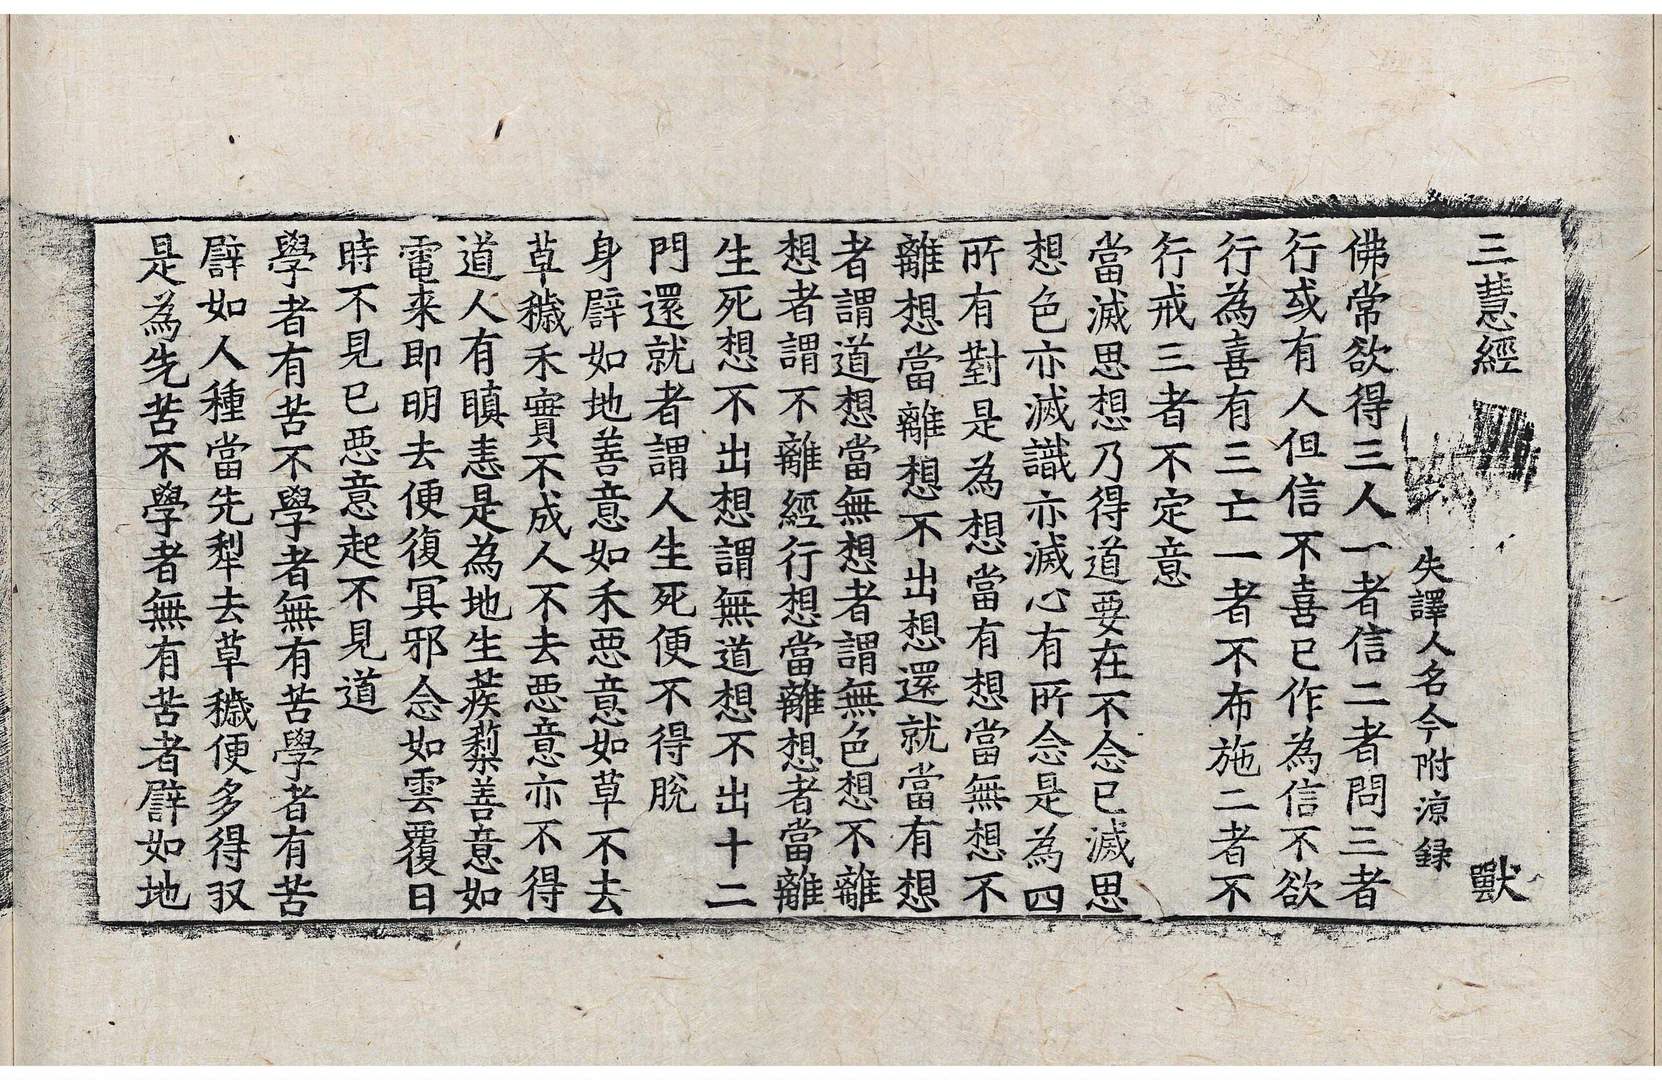 三慧經 獸
失譯人名今附涼録
佛常欲得三人一者信二者問三者
行或有人但信不喜已作為信不欲
行為喜有三亡一者不布施二者不
行戒三者不定意
當滅思想乃得道要在不念已滅思
想色亦滅識亦滅心有所念是為四
所有對是為想當有想當無想不
離想當離想不出想還就當有想
者謂道想當無想者謂無色想不離
想者謂不離經行想當離想者當離
生死想不出想謂無道想不出十二
門還就者謂人生死便不得脫
身譬如地善意如禾惡意如草不去
草穢禾實不成人不去惡意亦不得
道人有瞋恚是為地生蒺䔧善意如
電来即明去便復冥邪念如雲覆日
時不見已惡意起不見道
學者有苦不學者無有苦學者有苦
譬如人種當先犁去草穢便多得収
是為先苦不學者無有苦者譬如地